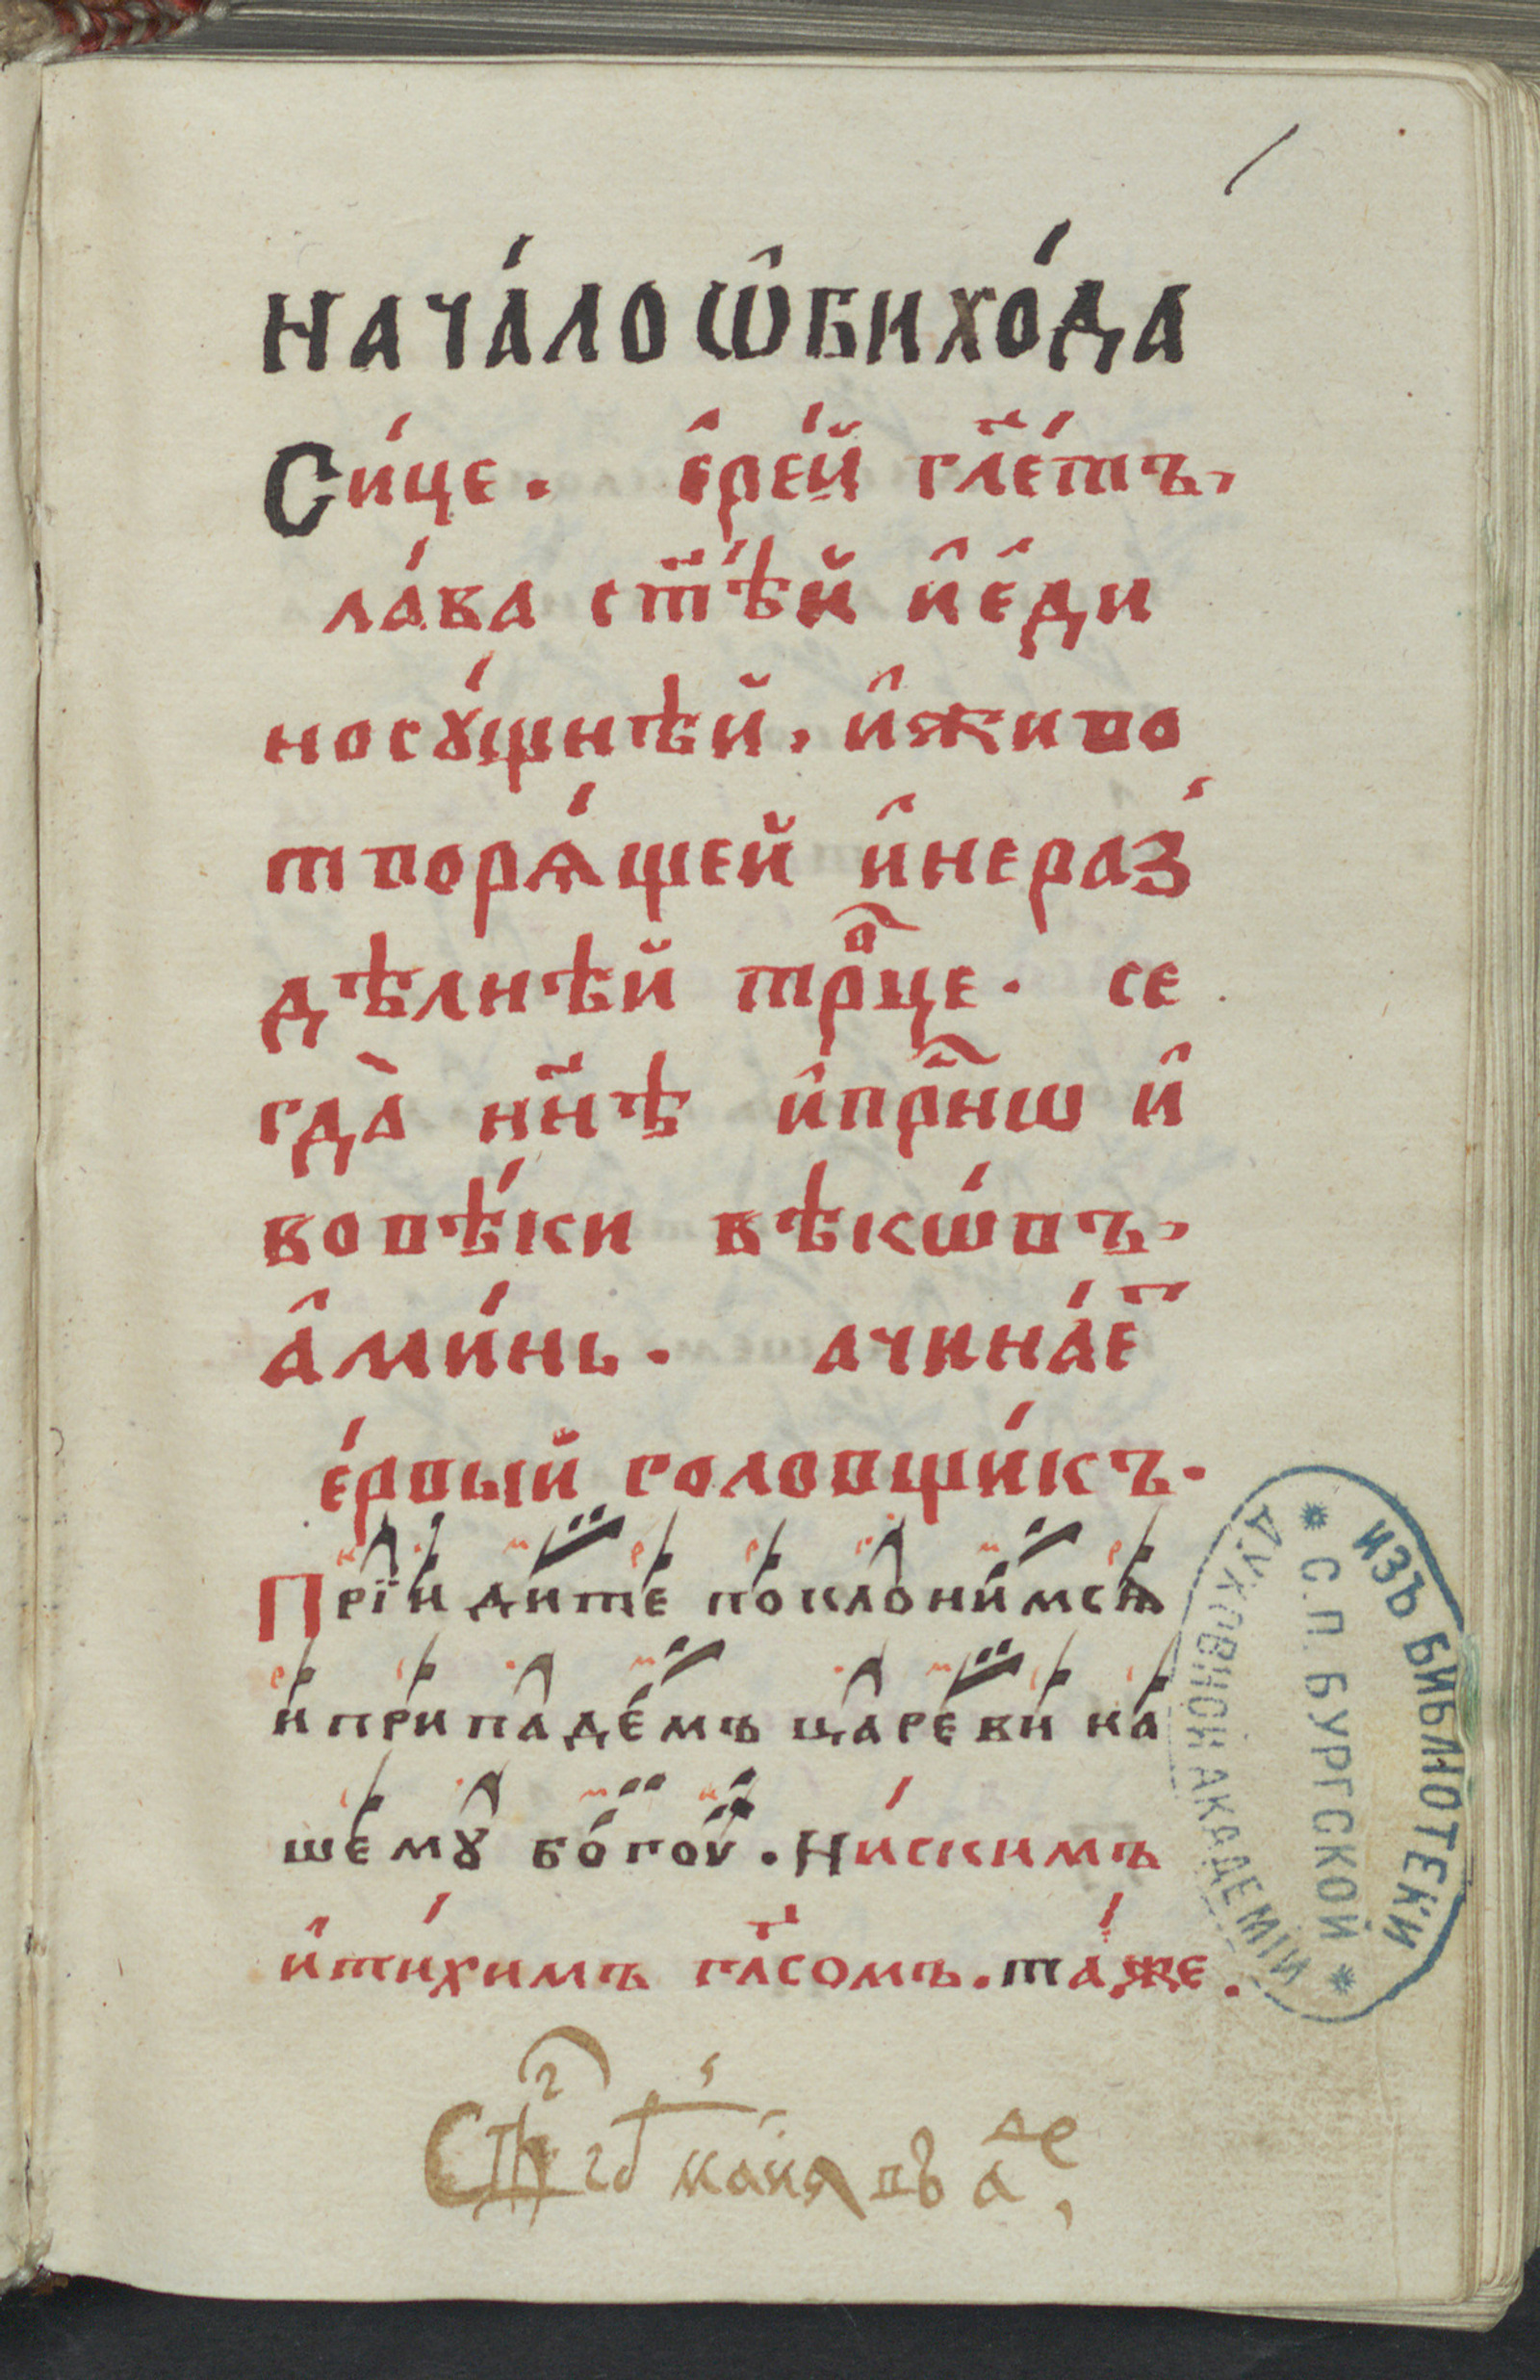 нача́ло ѡ҆бихо́да
Си́це. е҆ре́й гл҃е́тъ,
ла́ва ст҃ѣ́й и҆ е҆ди
носꙋ́щнѣй, и҆ живо
творѧ́щей и҆ нераз̾
дѣлнѣй трⷪ҇це. се
гда̀ нн҃ѣ и҆ прⷭ҇нѡ и҆
во вѣ́ки вѣкѡ́въ,
а҆ми́нь. ачина́е҃
е́рвый головщи́къ.
Прїидите поклонимсѧ
и припадемъ цареви на
шемꙋ богои. Ни́скимъ
и҆ ти́химъ гл҃сомъ. та́же.
ИЗЪ БИБЛІОТЕКИ
* С.П. БУРГСКОЙ *
ДУХОВНОЙ АКАДЕМІИ